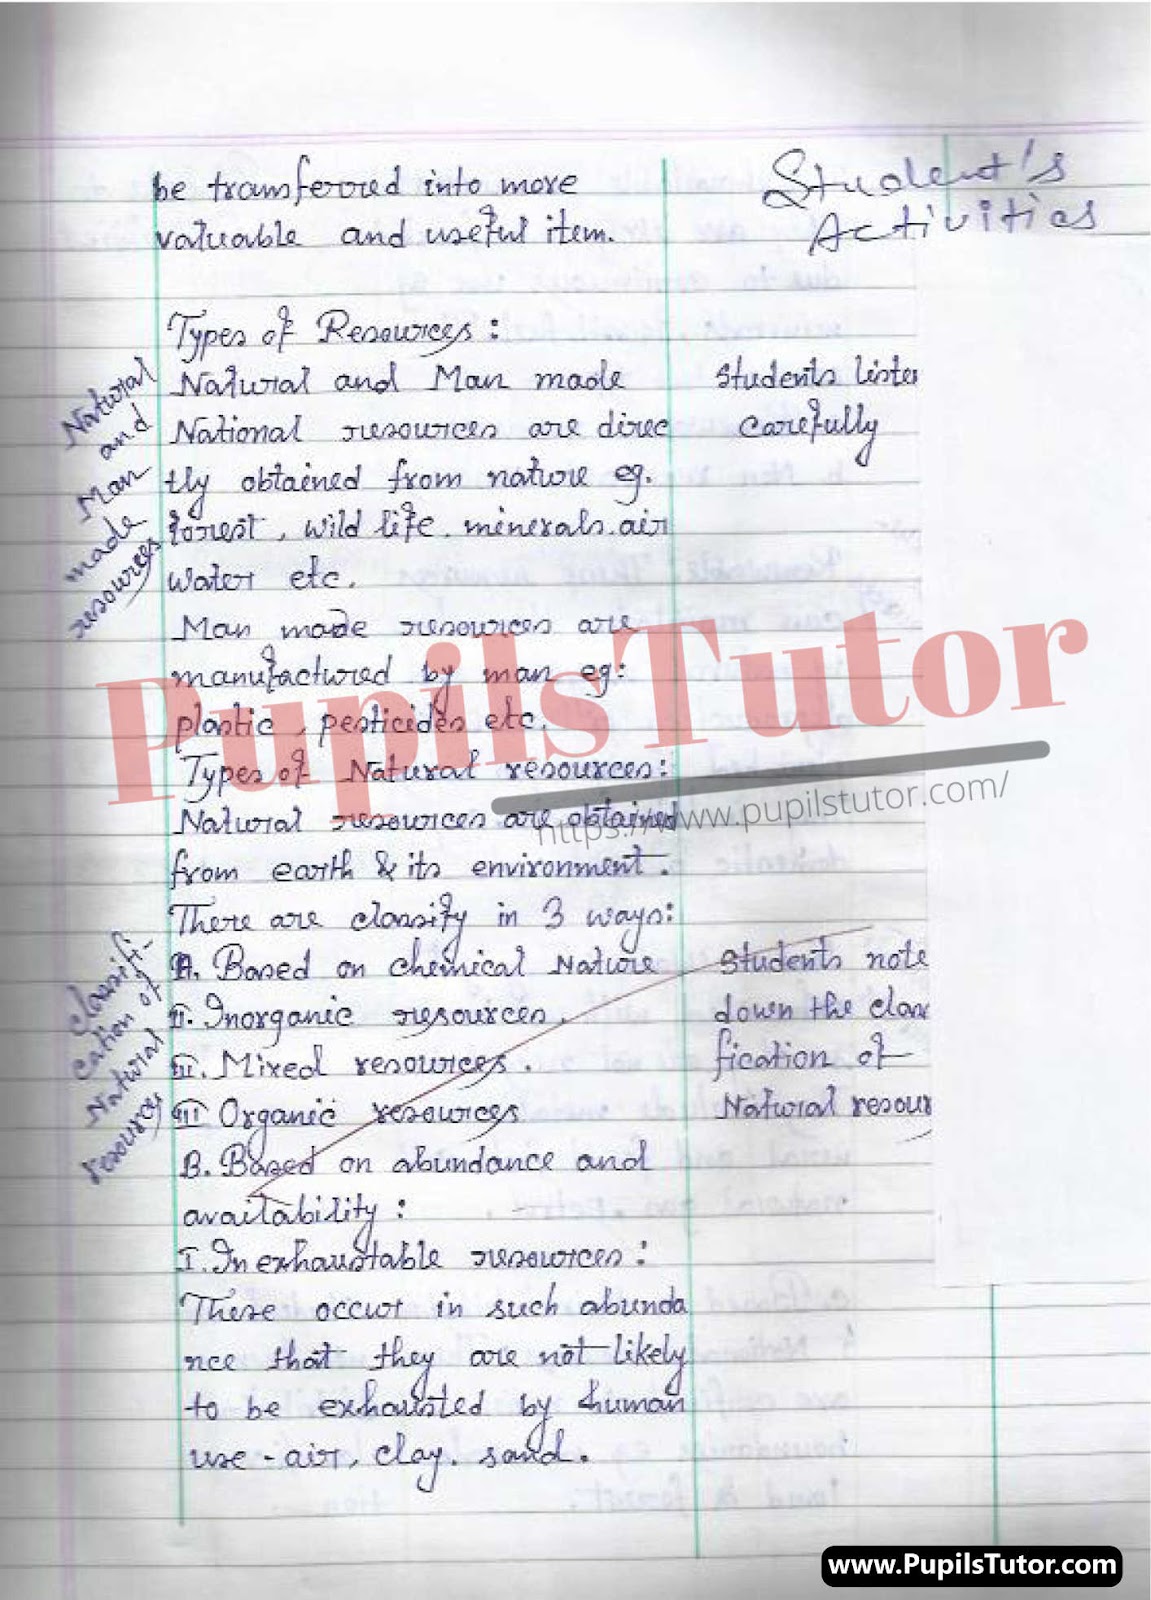 Student's
Activities
be transferred into more
valuable and useful item.
Types of Resources:
Natural and Man made
National resources are direc
tly obtained from nature eg.
forest, wild life. minerals. air
water etc.
Man made resources are
manufactured by man eg:
plastic, pesticides etc.
Types of Natural resources:
Natural resources are obtained
from earth & its environment.
There are classify in 3 ways:
A. Based on chemical Nature
Inorganic resources.
Mixed resources.
III Organic resources
B. Based on abundance and
availability:
I. Inexhaustable resources:
These occur in such abunda
nce that they are not likely
to be exhausted by human
use - air, clay. sand.
Natural
and
Man
made
resources
Classifi-
cation of
Natural
resources
Students liste
carefully
Students note
down the class
fication of
Natural resour
PupilsTutor
https://www.pupilstutor.com/
www.PupilsTutor.com